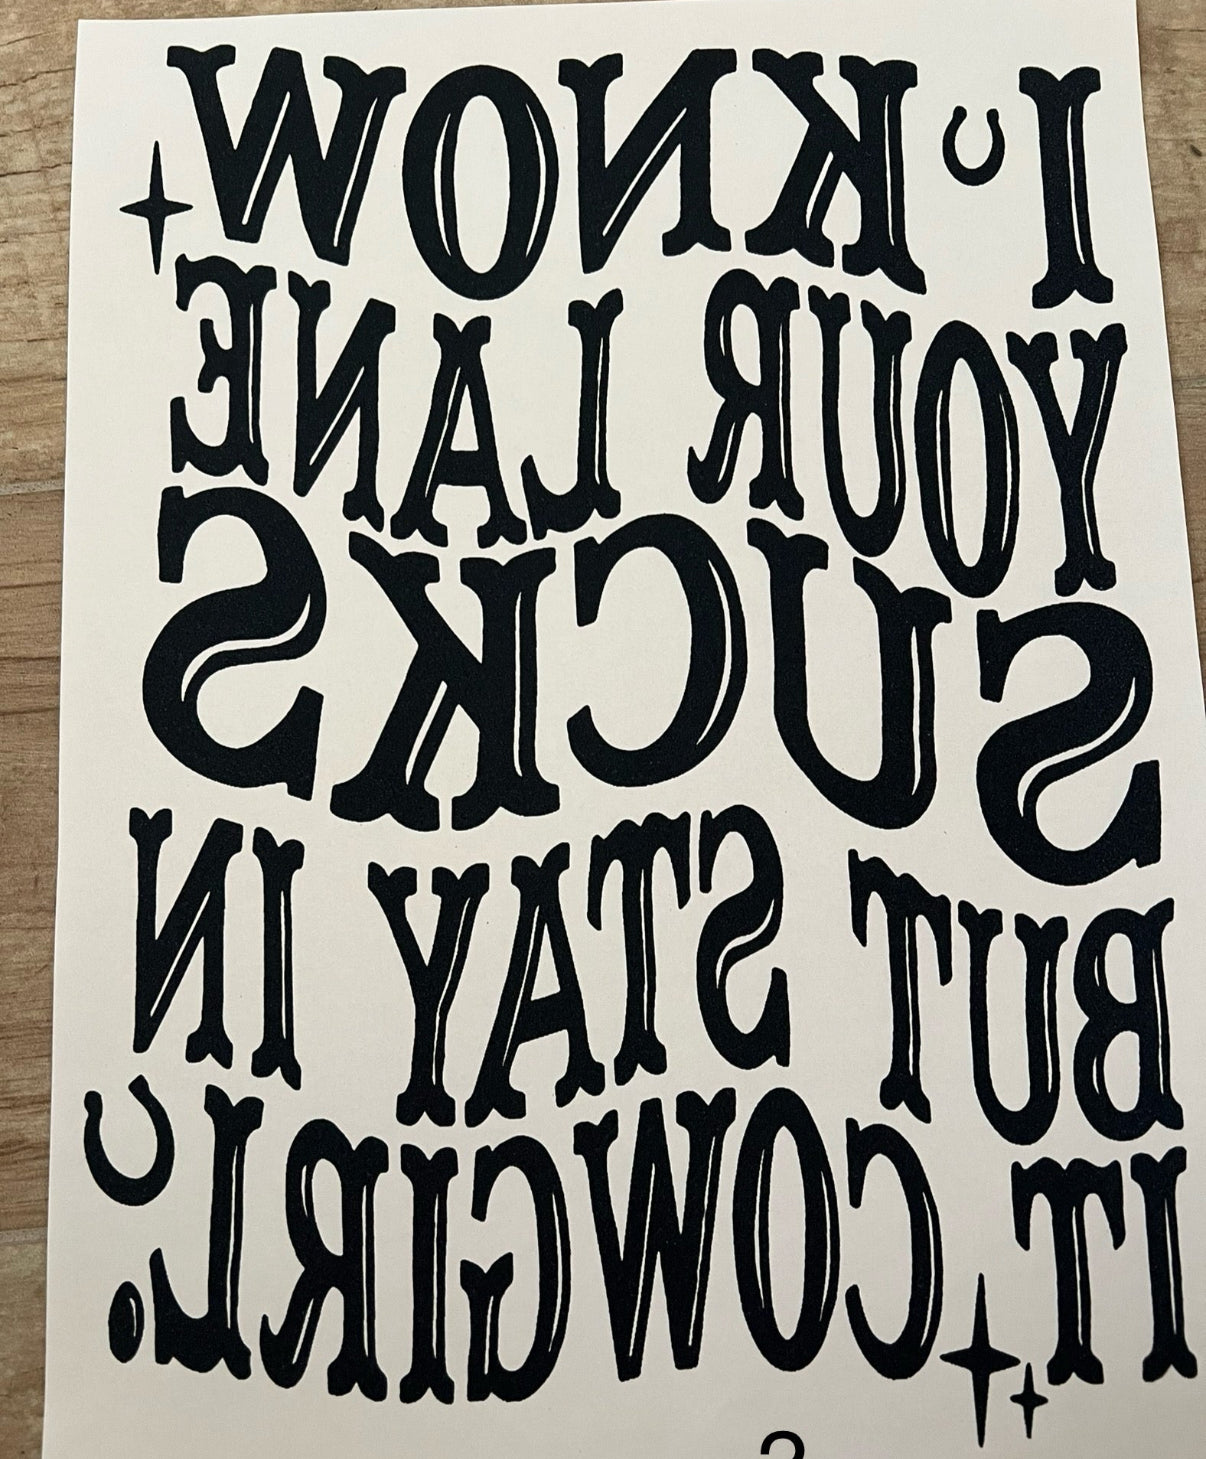 I KNOW
YOUR LANE
SUCKS
BUT STAY IN
IT COWGIRL.